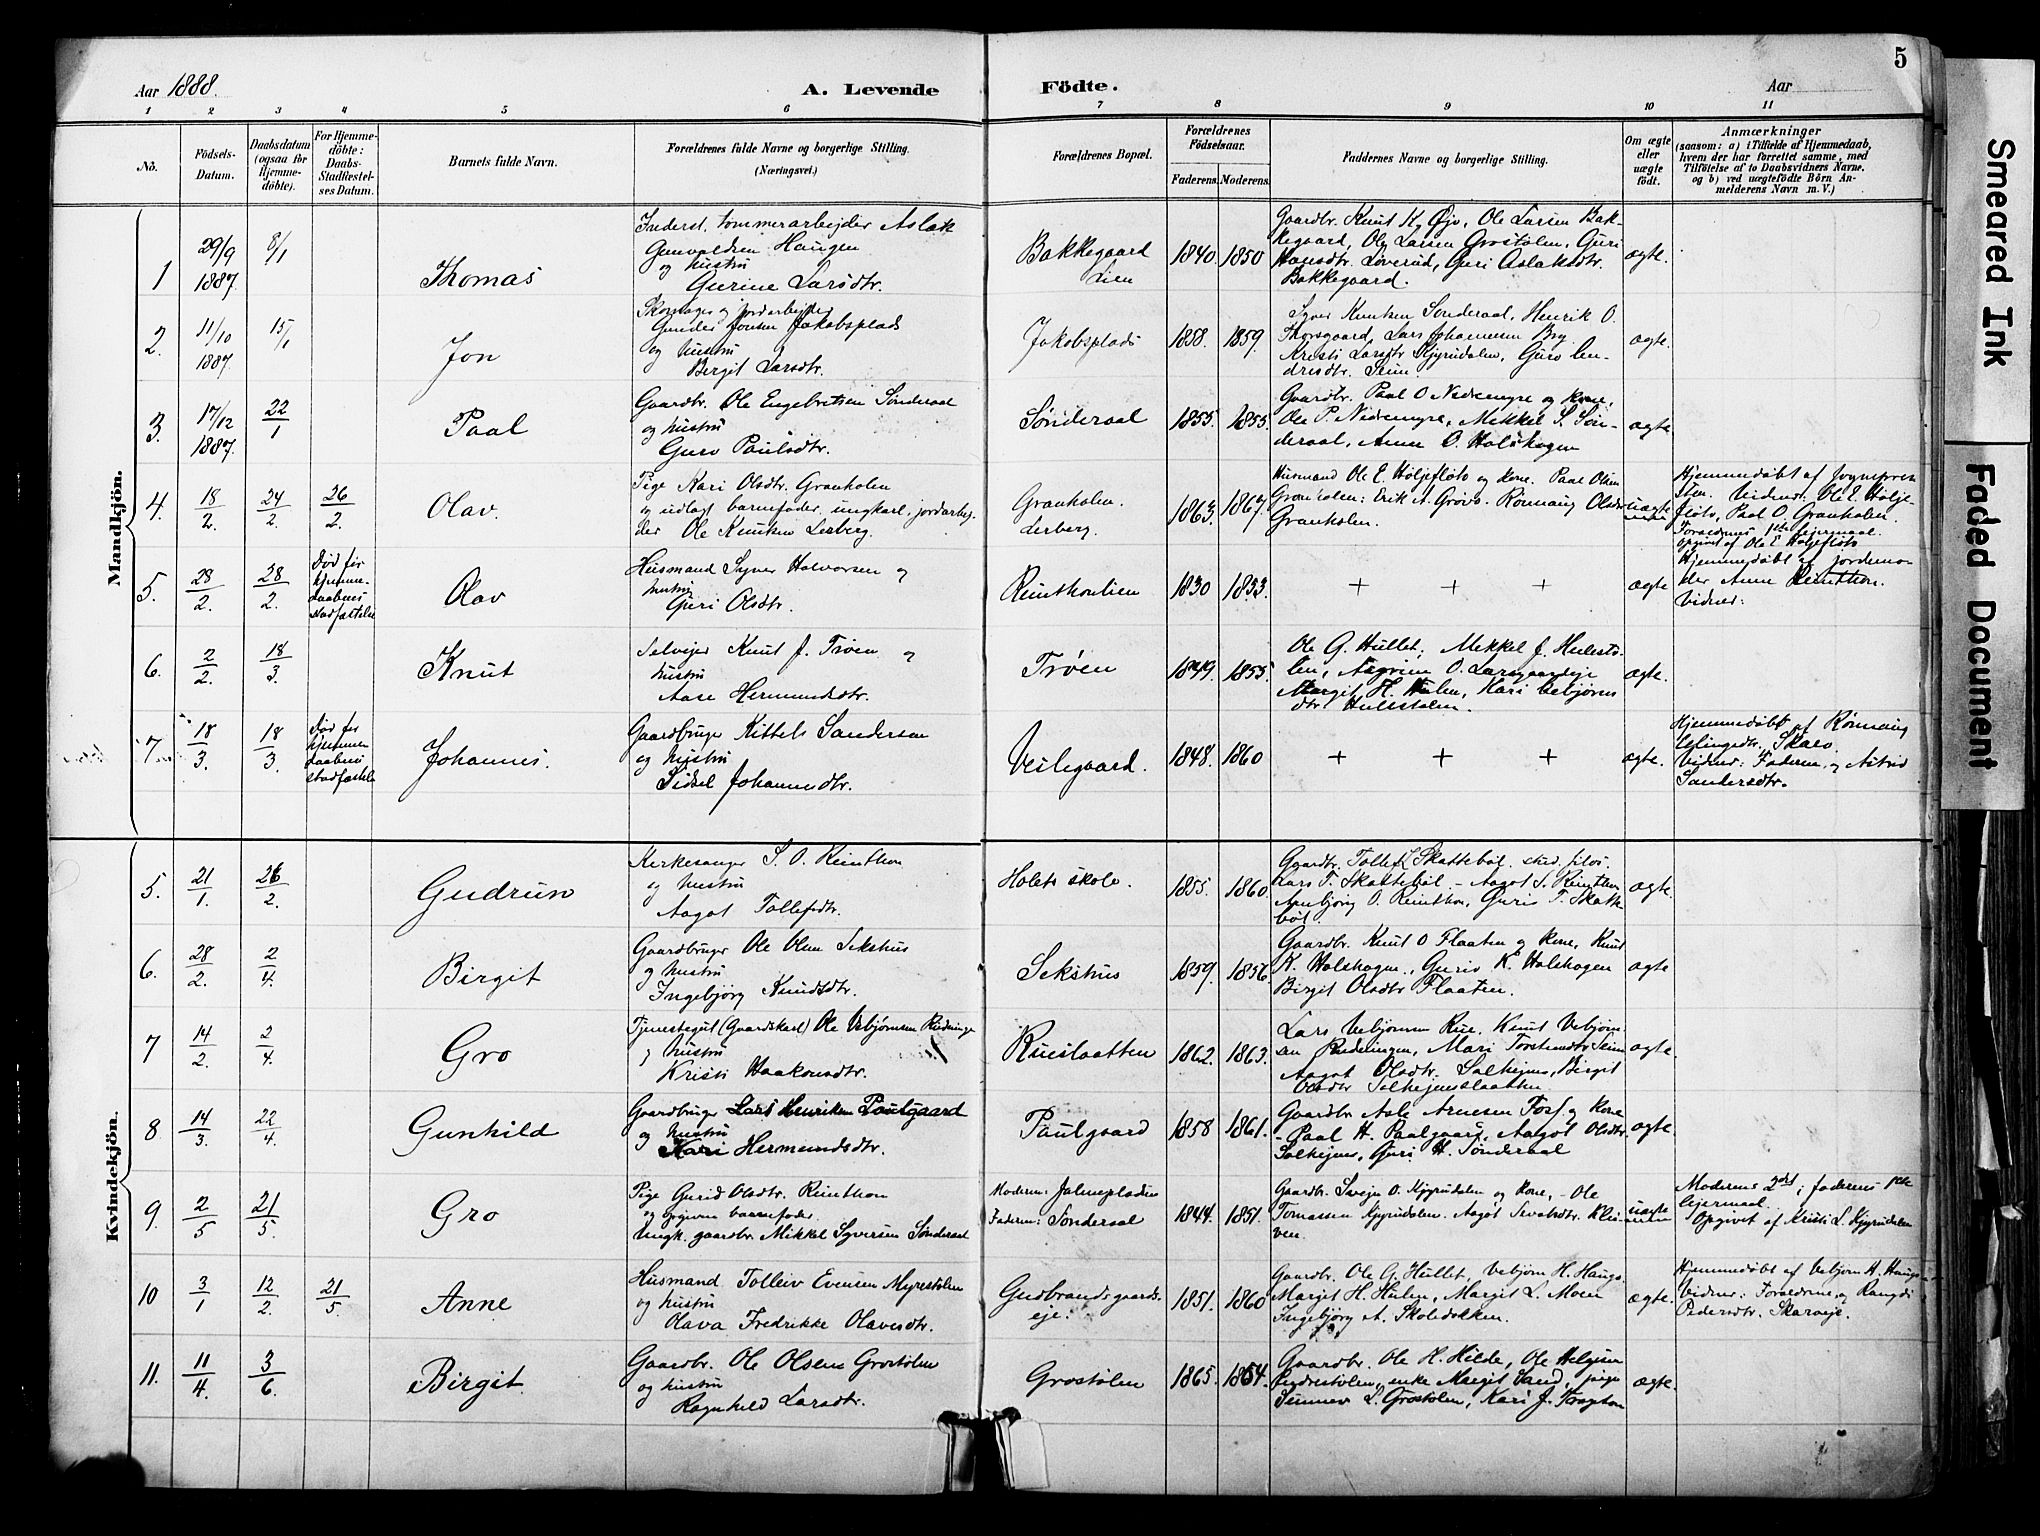 5
Aar 1888.
A. Levende Födte.
Aar
1 2 3 4 5 6 7 8 9 10 11
No.
Födsels-Datum.
Daabsdatum (ogsaa for Hjemme-döbte).
For Hjemme-döbte: Daabs-Stadfæstel-ses Datum.
Barnets fulde Navn.
Forældrenes fulde Navne og borgerlige Stilling.
(Næringsvei.)
Forældrenes Bopæl.
Forældrenes Födselsaar.
Faderens. Moderens.
Faddernes Navne og borgerlige Stilling.
Om ægte eller uægte födt.
Anmærkninger
(saasom: a) i Tilfælde af Hjemmedaab, hvem der har forrettet samme, med Tilföielse af to Daabsvidners Navne, og b) ved uægtefödte Börn Anmelderens Navn m. V.)
Mandkjön.
1 29/9 1887. 8/1 Thomas
Inderst. tømmerarbejder Aslak
Gunvaldsen Haugen
og hustru
Gurine Larsdtr.
Bakkegaard Lien 1840. 1850
Gaardbr. Knut K. Øjo, Ole Larsen Bak-
kegaard, Ole Larsen Grostølen, Guri
Hansdtr. Løverud, Guri Aslaksdtr.
Bakkegaard.
ægte.
2. 11/10 1887. 15/1 Jon
Skomager og jordarbejder
Gunder Jonsen Jakobsplads
og hustru
Birgit Larsdtr.
Jakobsplads 1858. 1859.
Syver Knutsen Sønderaal, Henrik O.
Thorsgaard, Lars Johannesen Bry.
Kristi Larsdtr. Kjyrudalen, Guro En-
dresdtr. Seim.
ægte.
3. 17/12 1887. 22/1 Paal
Gaardbr. Ole Engebretsen Sønderaal
og hustru
Guro Paulsdtr.
Sønderaal 1855. 1855.
Gaardbr. Paal O Nedremyre og kone,
Ole P. Nedremyre, Mekkel S. Søn-
deraal, Anne O. Holshagen
ægte
4. 18/2. 24/2. 26/2 Olav.
Pige Kari Olsdtr. Granholen
og udlagt barnefader, ungkarl, jordarbej-
der Ole Knutsen Lerberg.
Granholen. Lerberg. 1863. 1867.
Husmand Ole E. Holjefloto og kone. Paal Olsen
Granholen; Erik A. Grøvo. Rønnaug Olsdtr
Granholen.
uægte
Hjemmedøbt af Sognepres-
ten. Vidner: Ole E. Holje-
floto, Paul O Granholen.
Forældrenes 1ste Lejermaal.
opgivet af Ole E Holjefloto
5. 28/2. 28/2. Død før hjemme-daabens stadfæstelse Olav
Husmand Syver Halvorsen og
hustru
Guri Olsdtr.
Reinthonlien 1830 1833.
+ + +
ægte
Hjemmedøbt af jordemo-
der Anne Reinthon.
Vidner:
6. 2/2. 18/3. Knut
Selvejer Knut J. Trøen og
hustru
Aase Hermundsdtr.
Trøen 1849. 1855.
Ole G. Hullet, Mekkel J. Hulesto-
len, Asgrim O. Larsgaardeje
Margit H. Hulen, Kari Vebjørns
dtr Hulestolen.
ægte.
7 18/3. 18/3. Død før hjemmedaabens stadfæstelse Johannes.
Gaardbruger Kittel Sandersen
og hustru
Sidsel Johannesdtr.
Veslegaard. 1848. 1860
+ + +
ægte.
Hjemmedøbt af Rønnaug
Eslingsdtr. Skaro.
Vidner: Faderen og Astrid
Sandersdtr.
Kvindekjön.
5. 21/1. 26/2. Gudrun
Kirkesanger S. O. Reinthon
og hustru
Aagot Tollefsdtr.
Holets skole. 1855. 1860.
Gaardbr. Tollef L Skattebøl. stud. filos.
Lars T. Skattebøl. - Aagot S. Reinthon
Arnbjørg O. Reinthon, Guris T. Skatte-
bøl.
ægte.
6. 28/2. 2/4. Birgit
Gaardbruger Ole Olsen Sekshus
og hustru
Ingebjørg Knudsdtr.
Sekshus 1859. 1856.
Gaardbr. Knut O Flaaten og kone, Knut
K. Holshagen, Guro K. Holshagen
Birgit Olsdtr Flaaten.
ægte
7 14/2. 2/4. Gro
Tjenestegut (Gaardskarl) Ole Vebjørnsen Rudninge
og hustru
Kristi Haakonsdtr.
Rueslaatten 1862. 1863.
Lars Vebjørnsen Rue, Knut Vebjørn-
sen Rudningen, Mari Torstensdtr Seim
Aagot Olsdtr. Solhejms, Birgit
Olsdtr Solhejmslaatten.
ægte.
8 14/3. 22/4. Gunhild
Gaardbruger Lars Henriksen Paulgaard
og hustru
Kari Hermundsdtr.
Paulgaard 1858 1861.
Gaardbr. Asle Arnesen Torf og Kone
- Paal H. Paalgaard, Aagot Olsdtr.
Solhejms, Guri H. Sønderaal
ægte.
9. 2/5 21/5. Gro
Pige Gurid Olsdtr. Reinthon
og opgiven barnefader.
Ungk. gaardbr. Mikkel Syversen Sønderaal
Moderen: Jalmspladsen
Faderen: Sønderaal 1844. 1851.
Gaardbr. Svejn O. Kjyrudalen og kone, - Ole
Tomassen Kjyrudalen. Aagot Sevatsdtr. Klei-
ven.
uægte
Moderens 2det, faderens 1ste
Lejermaal.
Opgivet af Kristi L. Kjyrudalen
10 3/1 12/2. 21/5 Anne
Husmand Tolleiv Evensen Myrestølen
og hustru
Olava Fredrikke Olavesdtr.
Gudbrandsgaards-
eje. 1851. 1860
Gaardbr. Ole G. Hullet, Vebjørn H. Haugs.
Margit H. Hulen, Margit L. Moen
Ingebjørg A. Skoledokken.
ægte.
Hjemmedøbt af Vebjørn H. Haugs
Vidner: Forældrene og Rangdi
Pedersdtr. Skaroeje.
11. 11/4. 3/6. Birgit.
Gaardbr. Ole Olsen Grostølen
og hustru
Ragnhild Larsdtr.
Grostølen 1865. 1854.
Gaardbr. Ole H. Hilde, Ole Helgesen
Endrestølen, enke Margit Sand, pige
Sunnev L. Grostølen, Kari J. Tragton
ægte.
Smeared Ink
Faded Document